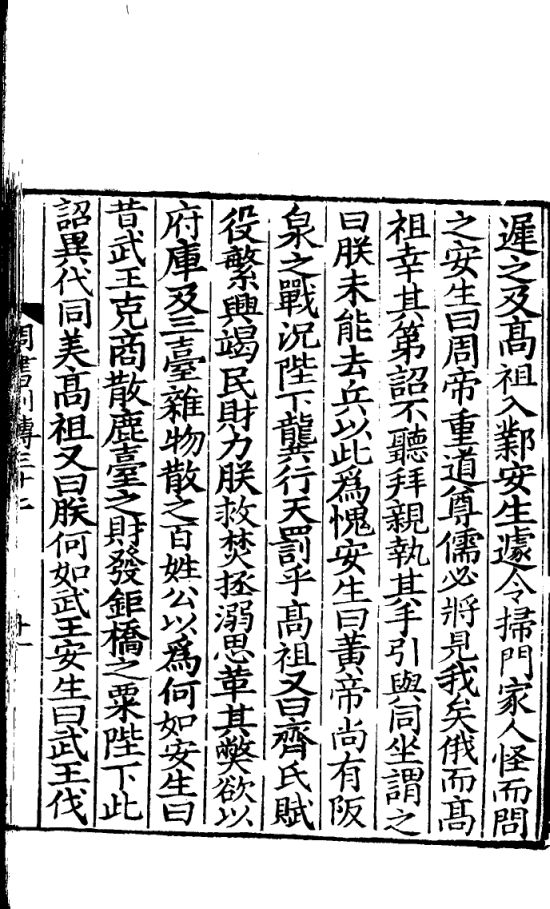 遲之及髙祖入鄴安生遽令掃門家人怪而問
之安生曰周帝重道尊儒必將見我矣俄而髙
祖幸其第詔不聽拜親執其手引與同坐謂之
曰朕未能去兵以此爲愧安生曰黄帝尚有阪
泉之戰況陛下龔行天罰乎髙祖又曰齊氏賦
役繁興竭民財力朕救焚拯溺思革其弊欲以
府庫及三臺雜物散之百姓公以爲何如安生曰
昔武王克商散鹿臺之財發鉅橋之粟陛下此
詔異代同美髙祖又曰朕何如武王安生曰武王伐
周書列傳三十七